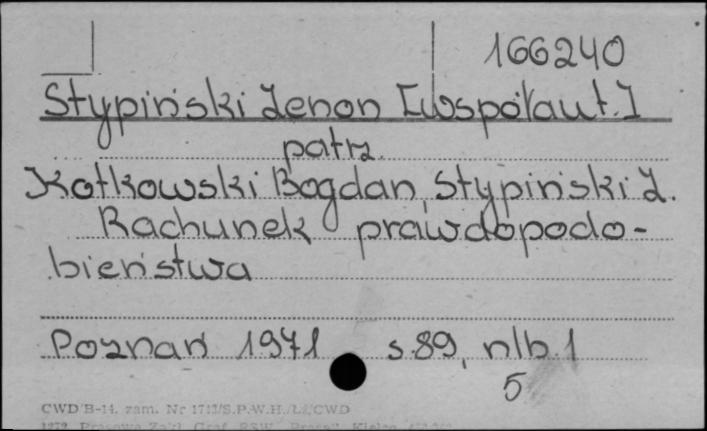 166240
Stypiński Zenon [współaut.]
patrz
Kotkowski Bogdan, Stypiński Z.
Rachunek prawdopodo-
bieństwa
Poznań 1971 s. 89, nlb. 1
5
CWD/B-14. zam. Nr 1713/S.P.W.H./Ł/CWD